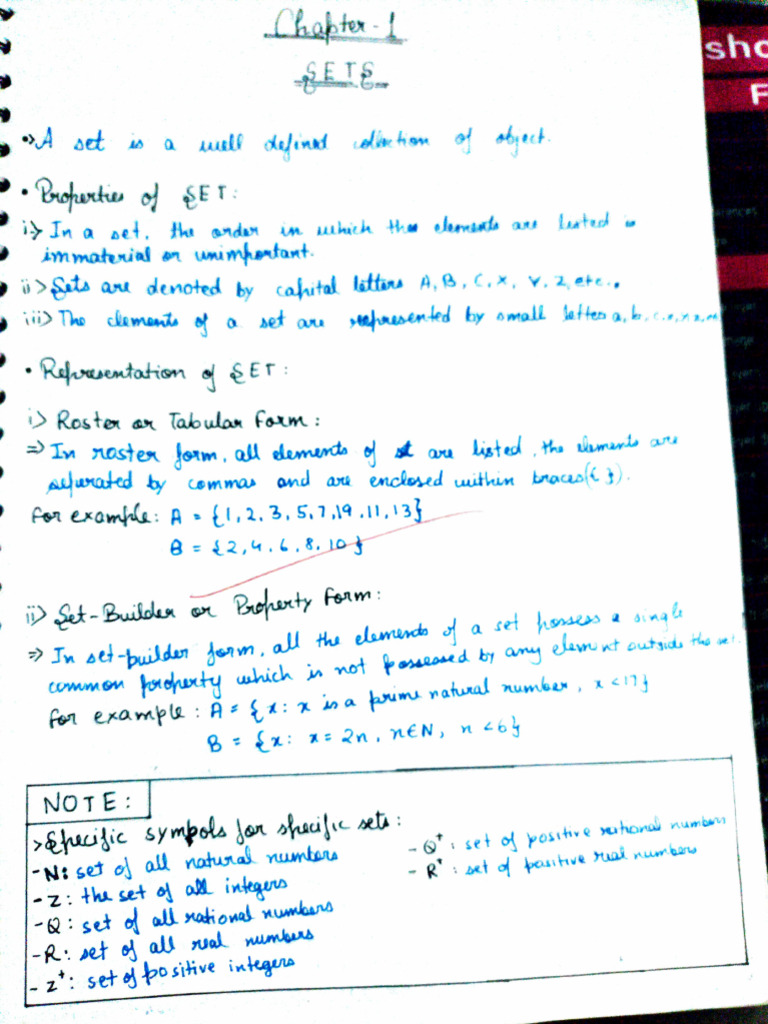 Chapter-1
SETS
•> A set is a well defined collection of object.
• Properties of SET:
i> In a set, the order in which the elements are listed is
immaterial or unimportant.
ii> Sets are denoted by capital letters A, B, C, X, Y, Z, etc..
iii> The elements of a set are represented by small letters a, b, c,
• Representation of SET:
i> Roster or Tabular Form:
⇒ In roster form, all elements of set are listed, the elements are
separated by commas and are enclosed within braces({ }).
for example: A = {1, 2, 3, 5, 7, 19, 11, 13}
B = {2, 4, 6, 8, 10}
ii> Set-Builder or Property Form:
⇒ In set-builder form, all the elements of a set possess a single
common property which is not possessed by any element outside the set.
for example: A = {x: x is a prime natural number, x <17}
B = {x: x = 2n, n∈N, n <6}
NOTE:
>Specific symbols for specific sets:
-N: set of all natural numbers
-Z: the set of all integers
-Q: set of all rational numbers
-R: set of all real numbers
-Z⁺: set of positive integers
-Q⁺: set of positive rational numbers
-R⁺: set of positive real numbers
sho
F